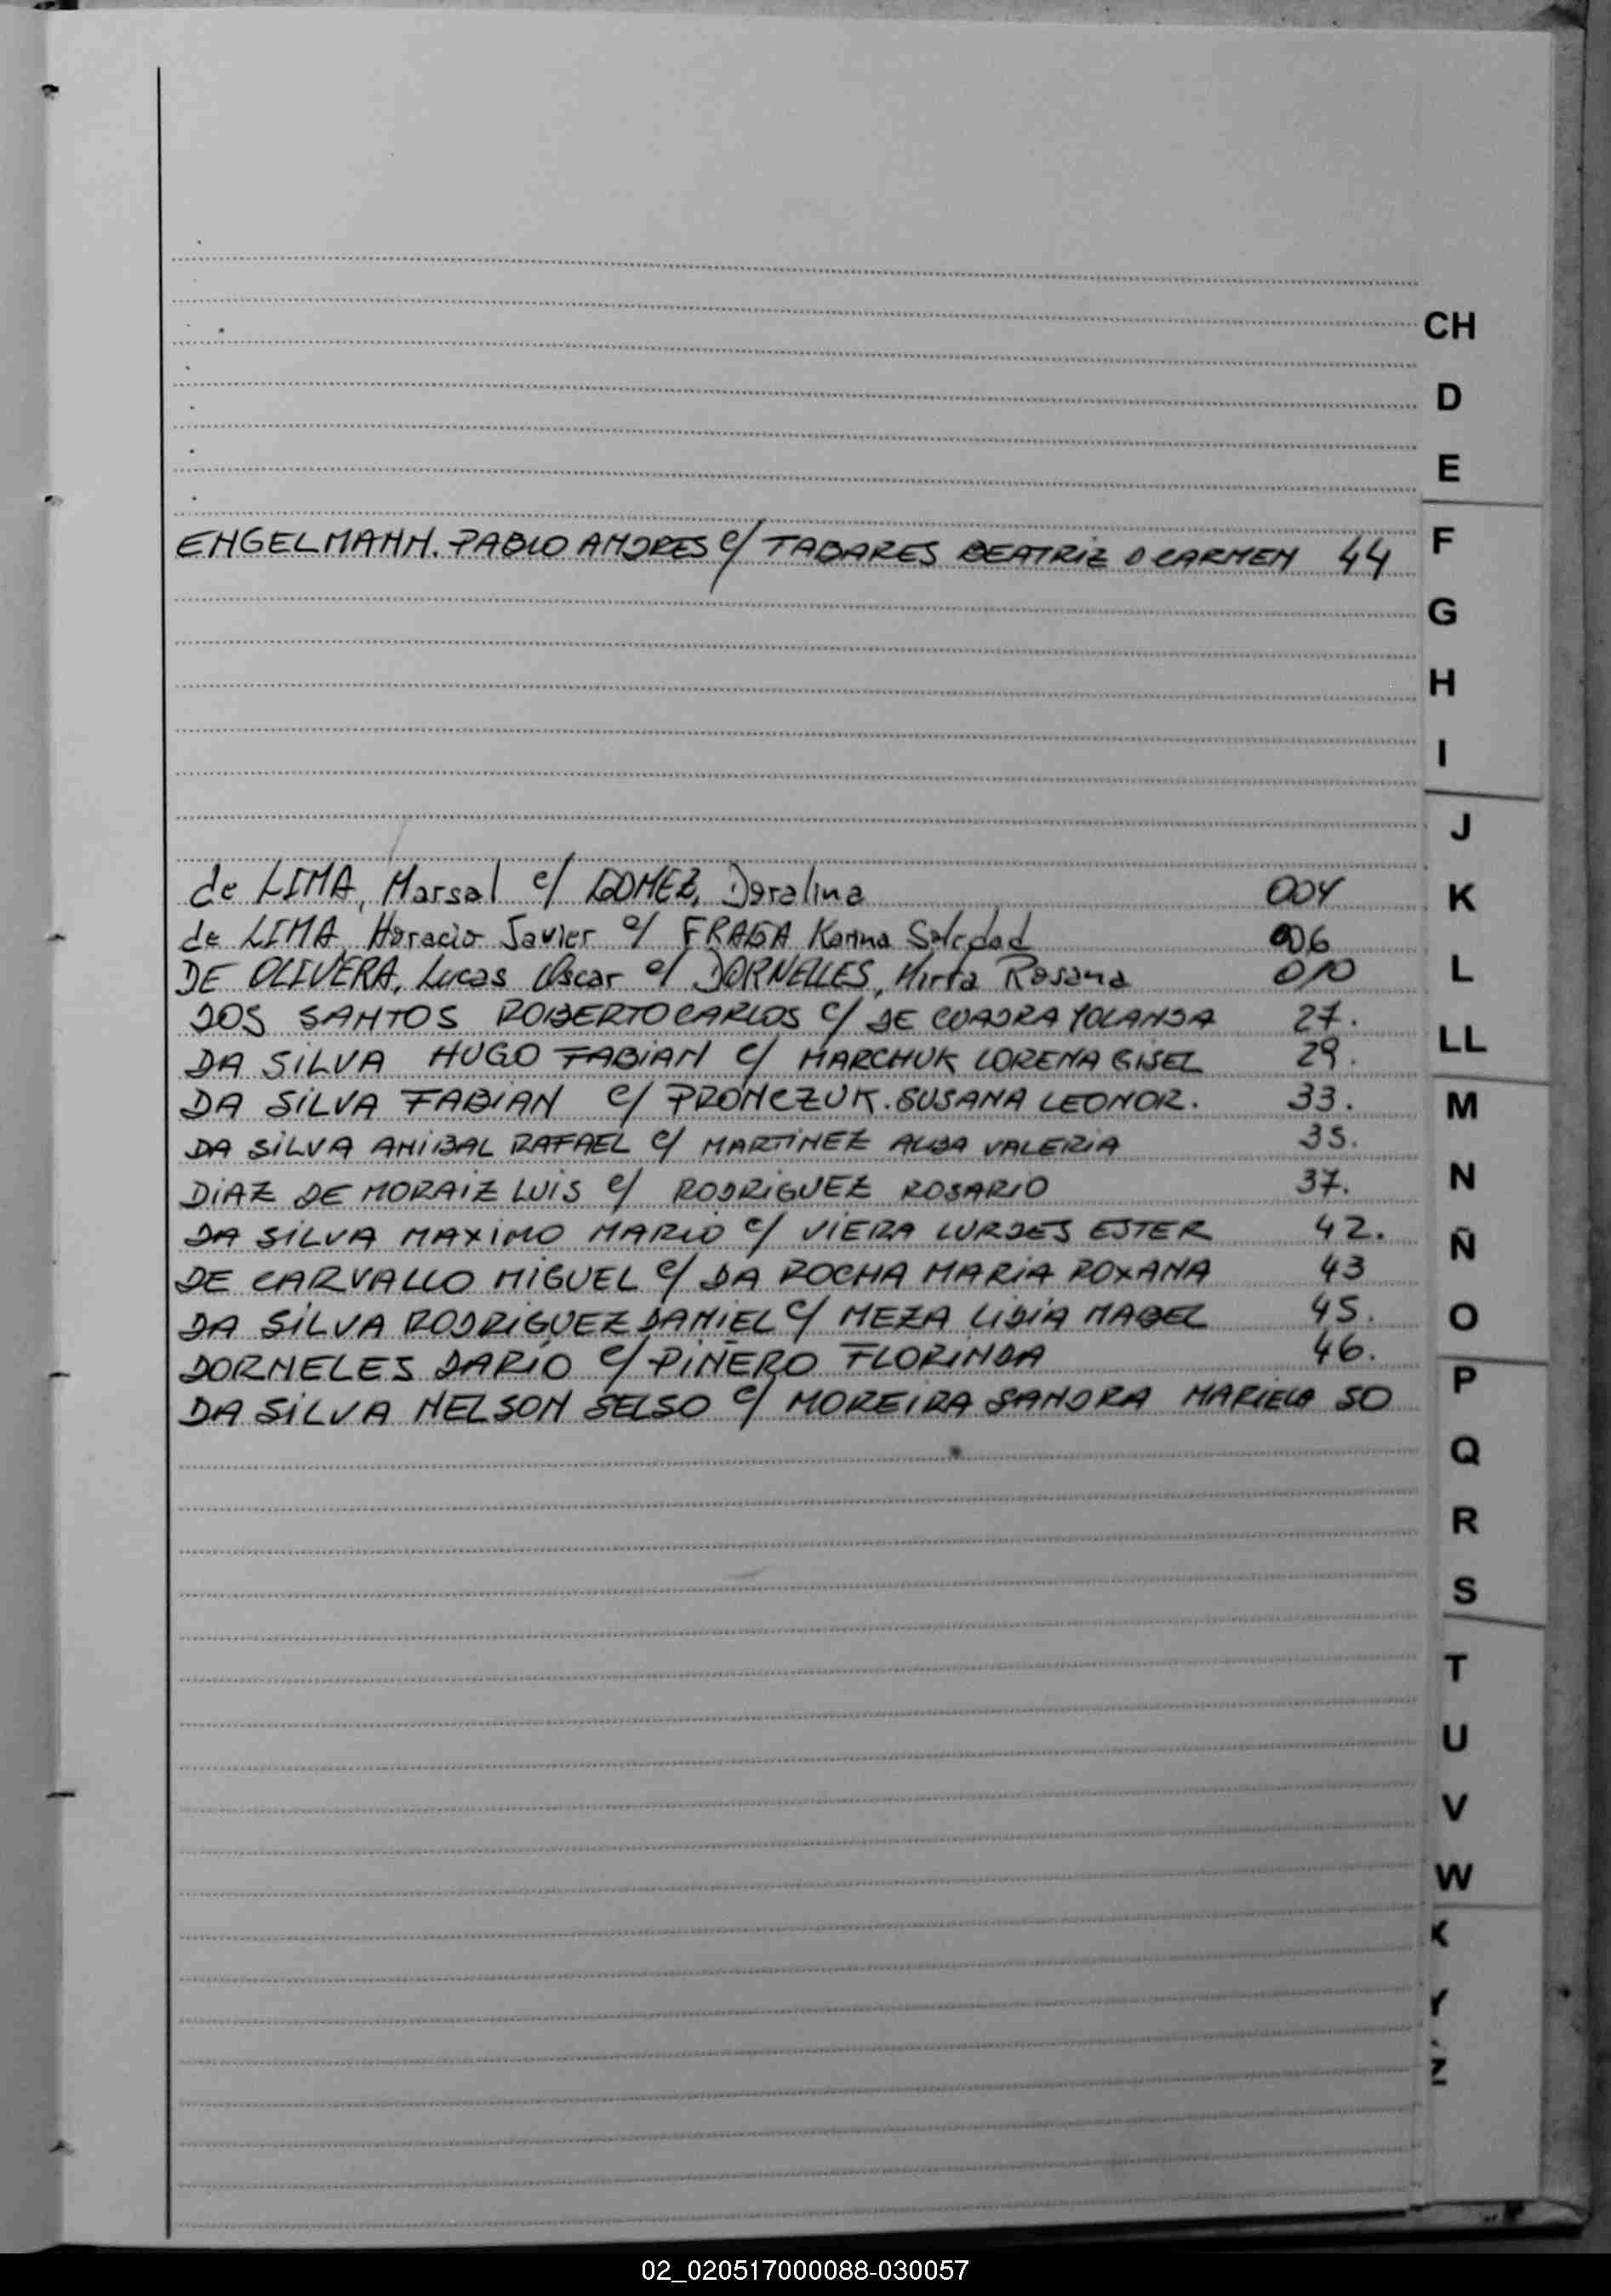 CH
D
E
ENGELMANN. PABLO ANDRES c/ TABARES BEATRIZ D CARMEN 44
F
G
H
I
J
de LIMA, Marsal c/ GOMEZ, Doralina 004
K
de LIMA, Horacio Javier c/ FRAGA Karina Soledad 006
DE OLIVERA, Lucas Oscar c/ DORNELLES, Mirta Rosana 010
L
DOS SANTOS ROBERTO CARLOS c/ DE CUADRA YOLANDA 27.
LL
DA SILVA HUGO FABIAN c/ MARCHUK LORENA GISEL 29.
DA SILVA FABIAN c/ PRONCZUK. SUSANA LEONOR. 33.
M
DA SILVA ANIBAL RAFAEL c/ MARTINEZ ALBA VALERIA 35.
DIAZ DE MORAIZ LUIS c/ RODRIGUEZ ROSARIO 37.
N
DA SILVA MAXIMO MARIO c/ VIERA LURDES ESTER 42.
Ñ
DE CARVALLO MIGUEL c/ DA ROCHA MARIA ROXANA 43
DA SILVA RODRIGUEZ DANIEL c/ MEZA LIDIA MABEL 45.
O
DORNELES DARIO c/ PIÑERO FLORINDA 46.
P
DA SILVA NELSON SELSO c/ MOREIRA SANDRA MARIELA 50
Q
R
S
T
U
V
W
X
Y
Z
02_020517000088-030057